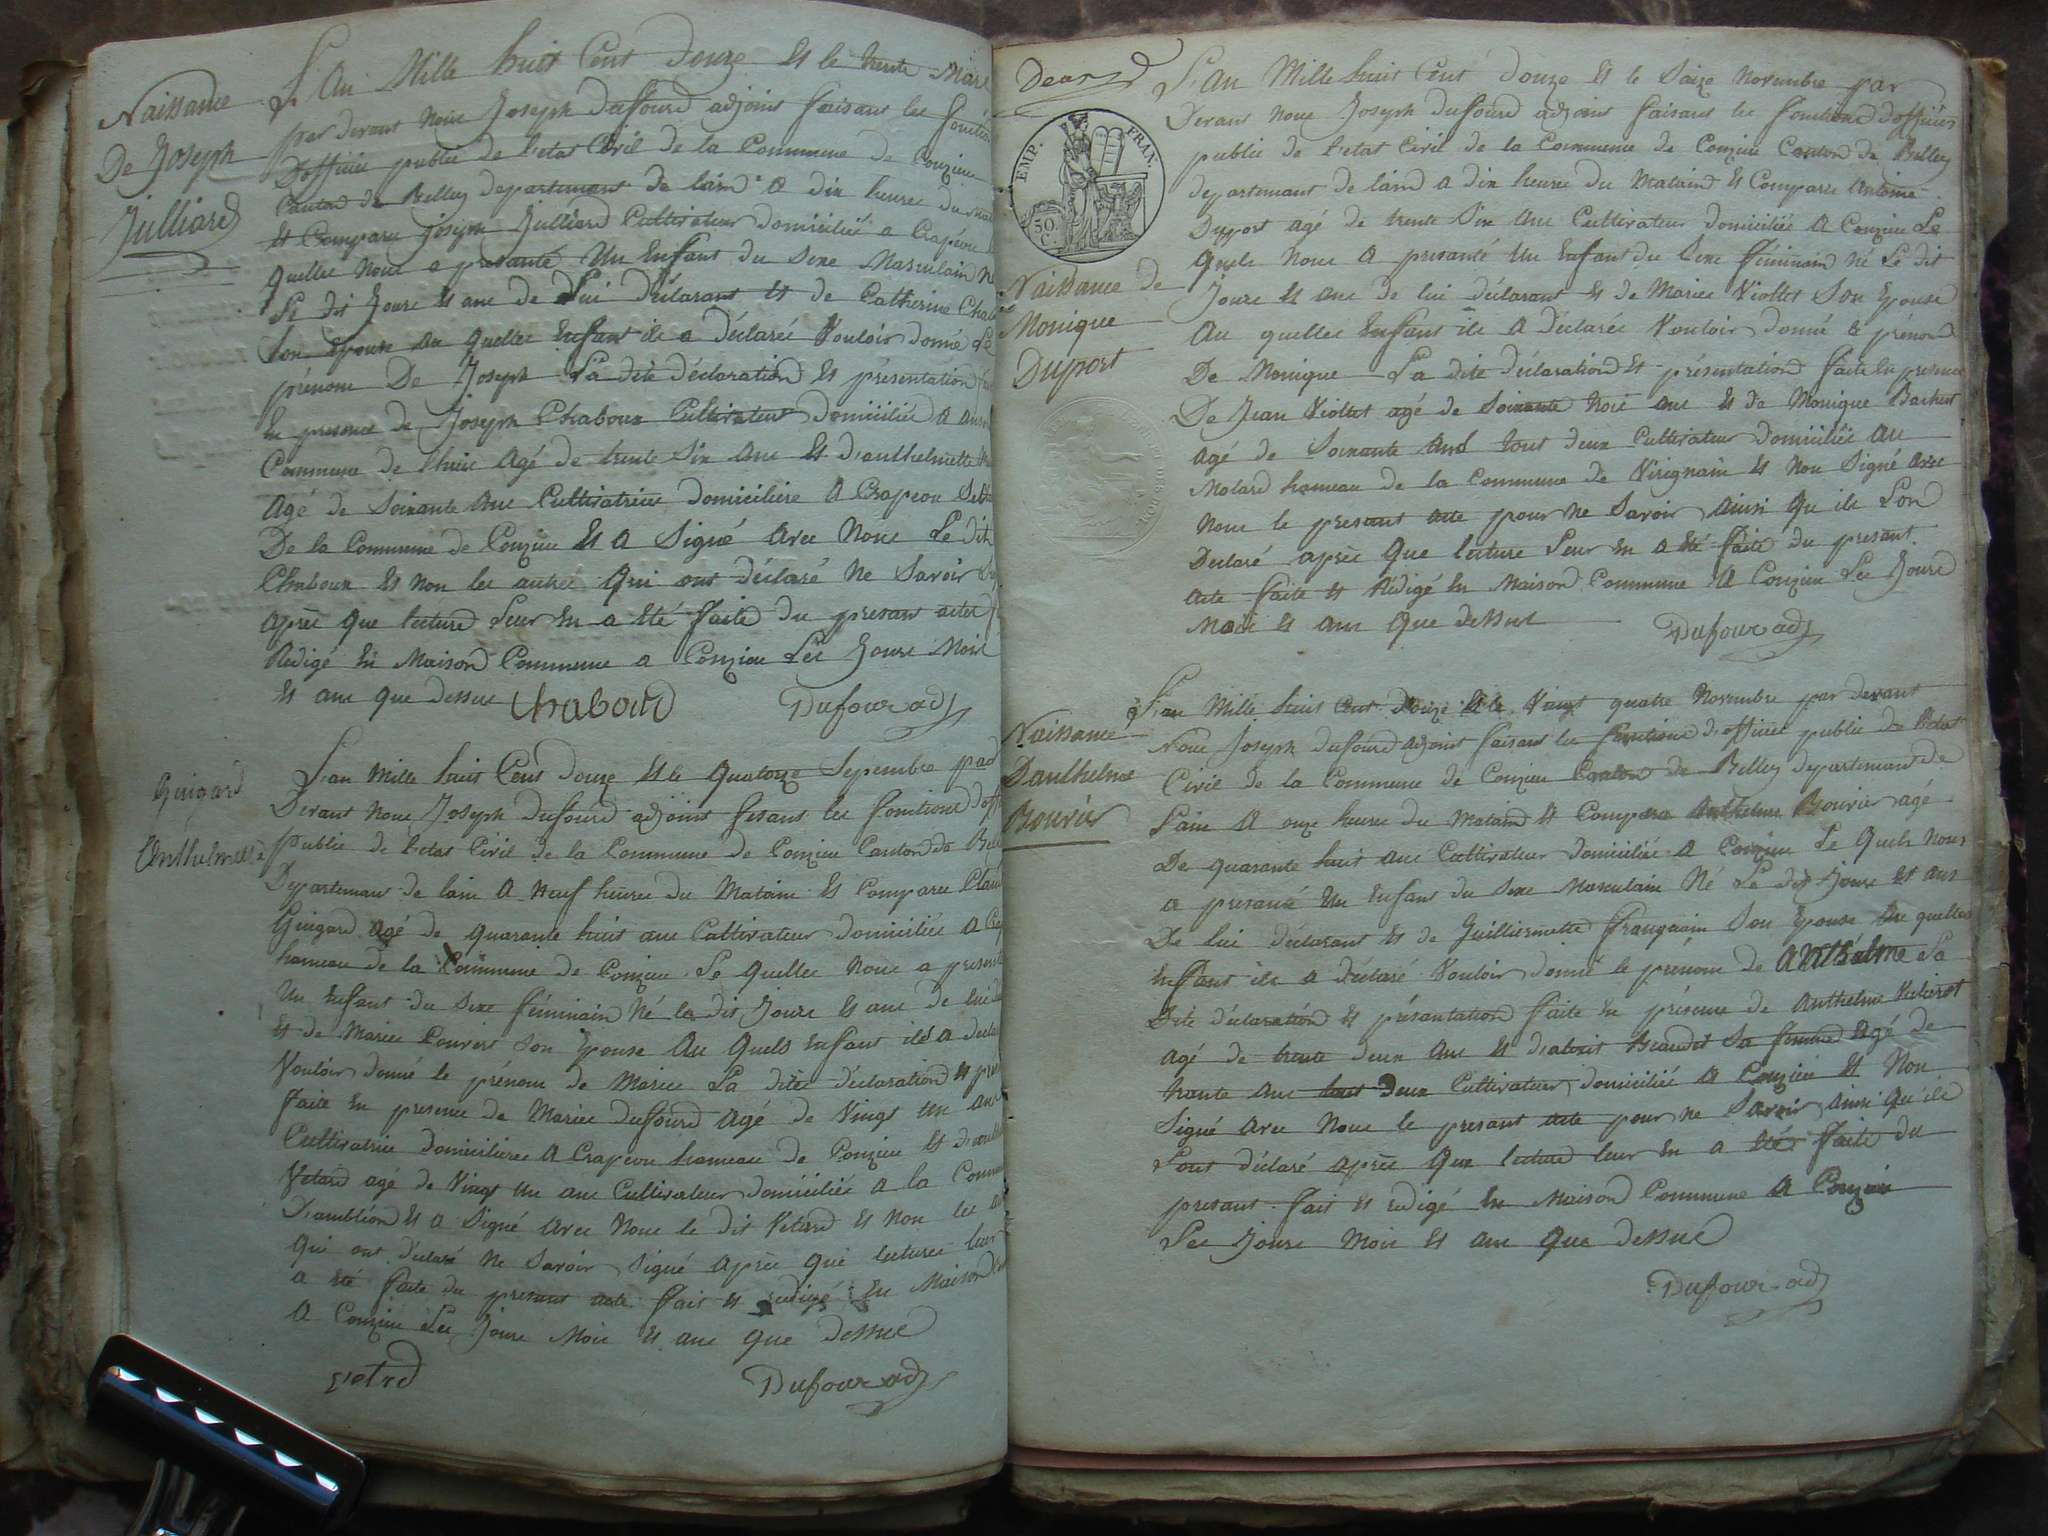 Naissance
De Joseph
Julliard
L'An Mille huit Cent Douze Et le trente Mars
par devant Nous Joseph Dufourd adjoint faisant les
D'officier public de l'etat Civil de la Commune de Couzieu
Canton de Belley departement de lain a dix heures du
Et Comparu joseph Julliard Cultivateur domicilié a Crapeou
quelle Nous a presanté Un Enfant du Sexe Masculain
Le dit Jours Et ans de Lui Déclarant Et de Catherine
Son Epouse au quelle Enfant ile a Déclaré Vouloir donné Le
prénom De Joseph La dite déclaration Et présentation
En presence de Joseph Chaboux Cultivateur domicilié a
Commune de agé de trente Six ans Et D'anthelmette
Agé de Soixante ans Cultivatrice domicilière A Crapeou
De la Commune de Couzieu Et a Signé avec Nous Le dit
Chaboux Et non les autres qui ont déclaré Ne Savoir
après que lecture Leur En a Eté faite du presant acte
Rédigé En Maison Commune a Couzieu Les Jours Mois
Et ans que dessus Chaboud Dufour adj
Guigard
Anthelmette
L'an Mille huit Cent douze Et le quatorze Sepembre par
Devant Nous Joseph Dufourd adjoint fesant les fonctions
Public de l'etat Civil de la Commune de Couzieu Canton de
Departement de lain A Neuf heures du Matain Et Comparu
Guigard agé de quarante huit ans Cultivateur domicilié a
hameau de la Commune de Couzieu Le quelle Nous a
Un Enfant du Sexe féminain Né le dit Jours Et ans de lui
Et de Marie Pouvert Son Epouse Au quels Enfant ile a
Vouloir donné le prénom de Marie La dite déclaration Et
faite En presence de Marie dufourd agé de Vingt Un ans
Cultivatrice domicilière A Crapeou hameau de Couzieu Et
Vétard agé de Vingt Un ans Cultivateur domicilié a la
D'ambléon Et a Signé avec Nous le dit Vétard Et Non les
qui ont déclaré Ne Savoir Signé après que lecture leur
a été faite du presant acte fait Et redigé En Maison
A Couzieu Les Jours Mois Et ans que dessus
vetrd Dufour adj
EMP. FRAN.
50 C.
Naissance de
Monique
Duport
L'An Mille huit Cent Douze Et le Saize Novembre par
Devant Nous Joseph Dufourd adjoint faisant les fonctions D'officier
public de l'etat Civil de la Commune de Couzieu Canton de Belley
departemant de lain a dix heures du Matain Et Comparu Antoine
Duport agé de trente Six ans Cultivateur domicilié A Couzieu Le
Quels Nous A presanté Un Enfant du Sexe féminain né Le dit
Jours Et ans de lui déclarant Et de Marie Viollet Son Epouse
Au quelle Enfant ile A déclaré Vouloir donné le prénom
De Monique La dite déclaration Et présentation faite En presence
De Jean Viollet agé de Soixante Et de Monique
agé de Soixante ans tout deux Cultivateur domicilié Au
Molard hameau de la Commune de Virignain Et Non Signé avec
Nous le presant acte pour ne Savoir ainsi qu ile L'on
Déclaré après que lecture Leur En a été faite du presant
acte faite Et Rédigé En Maison Commune A Couzieu Les Jours
Mois Et ans que dessus
Dufour adj
Naissance
Danthelme
Bouvier
L'an Mille huit Cent Douze Et le Vingt quatre Novembre par devant
Nous Joseph dufourd adjoint faisant les fonctions d'officier public de l'etat
Civil de la Commune de Couzieu Canton de Belley departemant de
Lain A onze heures du Matain Et Comparu Anthelme Bouvier agé
De quarante huit ans Cultivateur domicilié A Couzieu Le Quels Nous
a presanté Un Enfant du Sexe Masculain Né Le dit Jours Et ans
De lui déclarant Et de Guilliermette Son Epouse Au quelle
Enfant ile a déclaré Vouloir donné le prénom de Anthelme La
Dite déclaration Et présentation faite En présence de Anthelme
agé de trente deux ans Et Sa femme agé de
trente ans tout deux Cultivateur domicilié A Couzieu Et Non
Signé avec Nous le presant acte pour ne Savoir ainsi qu'ile
L'ont déclaré après que lecture leur En a été faite du
presant fait Et redigé En Maison Commune A Couzieu
Les Jours Mois Et ans que dessus
Dufour adj